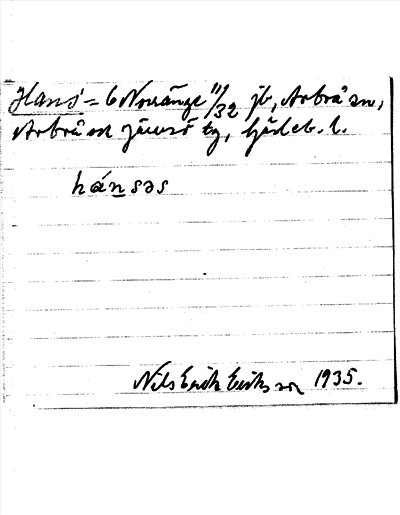 Hans = 6 Norränge 11/32 jb, Arbrå sn,
Arbrå och Järvsö tg, Gävleb. l.
hánsəs
Nils Erik Eriksson 1935.